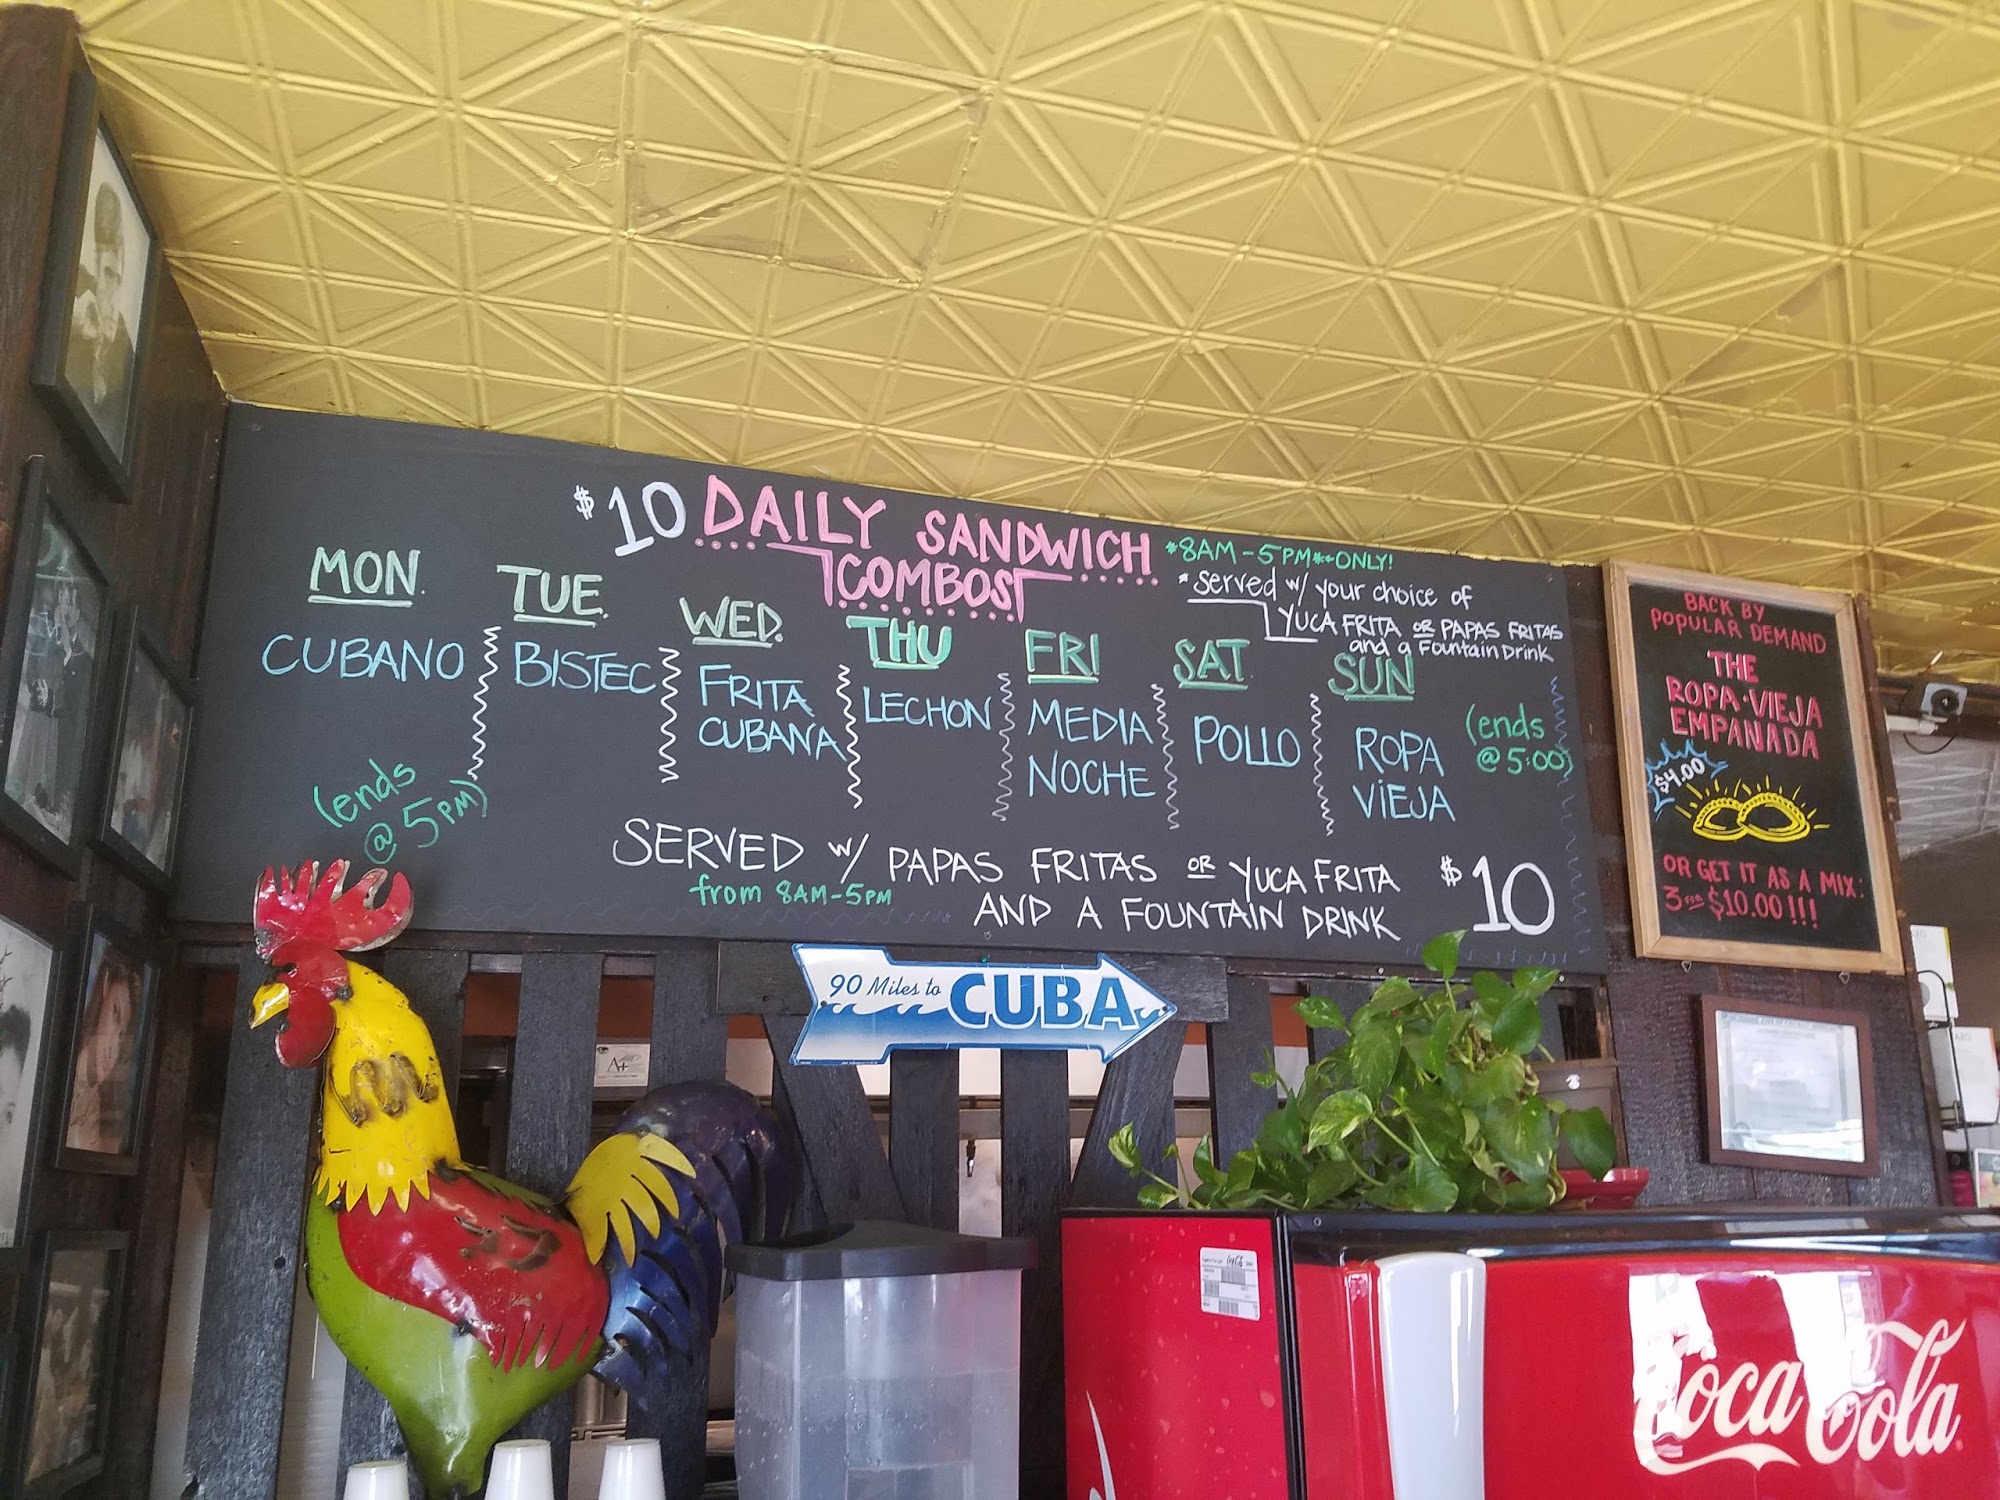 $10 DAILY SANDWICH
COMBOS
*8AM-5PM*-ONLY!
*served w/ your choice of
YUCA FRITA OR PAPAS FRITAS
and a Fountain Drink
MON.
CUBANO
(ends
@ 5PM)
TUE.
BISTEC
WED.
FRITA
CUBANA
THU
LECHON
FRI
MEDIA
NOCHE
SAT.
POLLO
SUN
ROPA
VIEJA
(ends
@ 5:00)
SERVED w/ PAPAS FRITAS OR YUCA FRITA
from 8AM-5PM
AND A FOUNTAIN DRINK
$10
BACK BY
POPULAR DEMAND
THE
ROPA·VIEJA
EMPANADA
$4.00
OR GET IT AS A MIX:
3 FOR $10.00!!!
90 Miles to CUBA
A+
Coca Cola